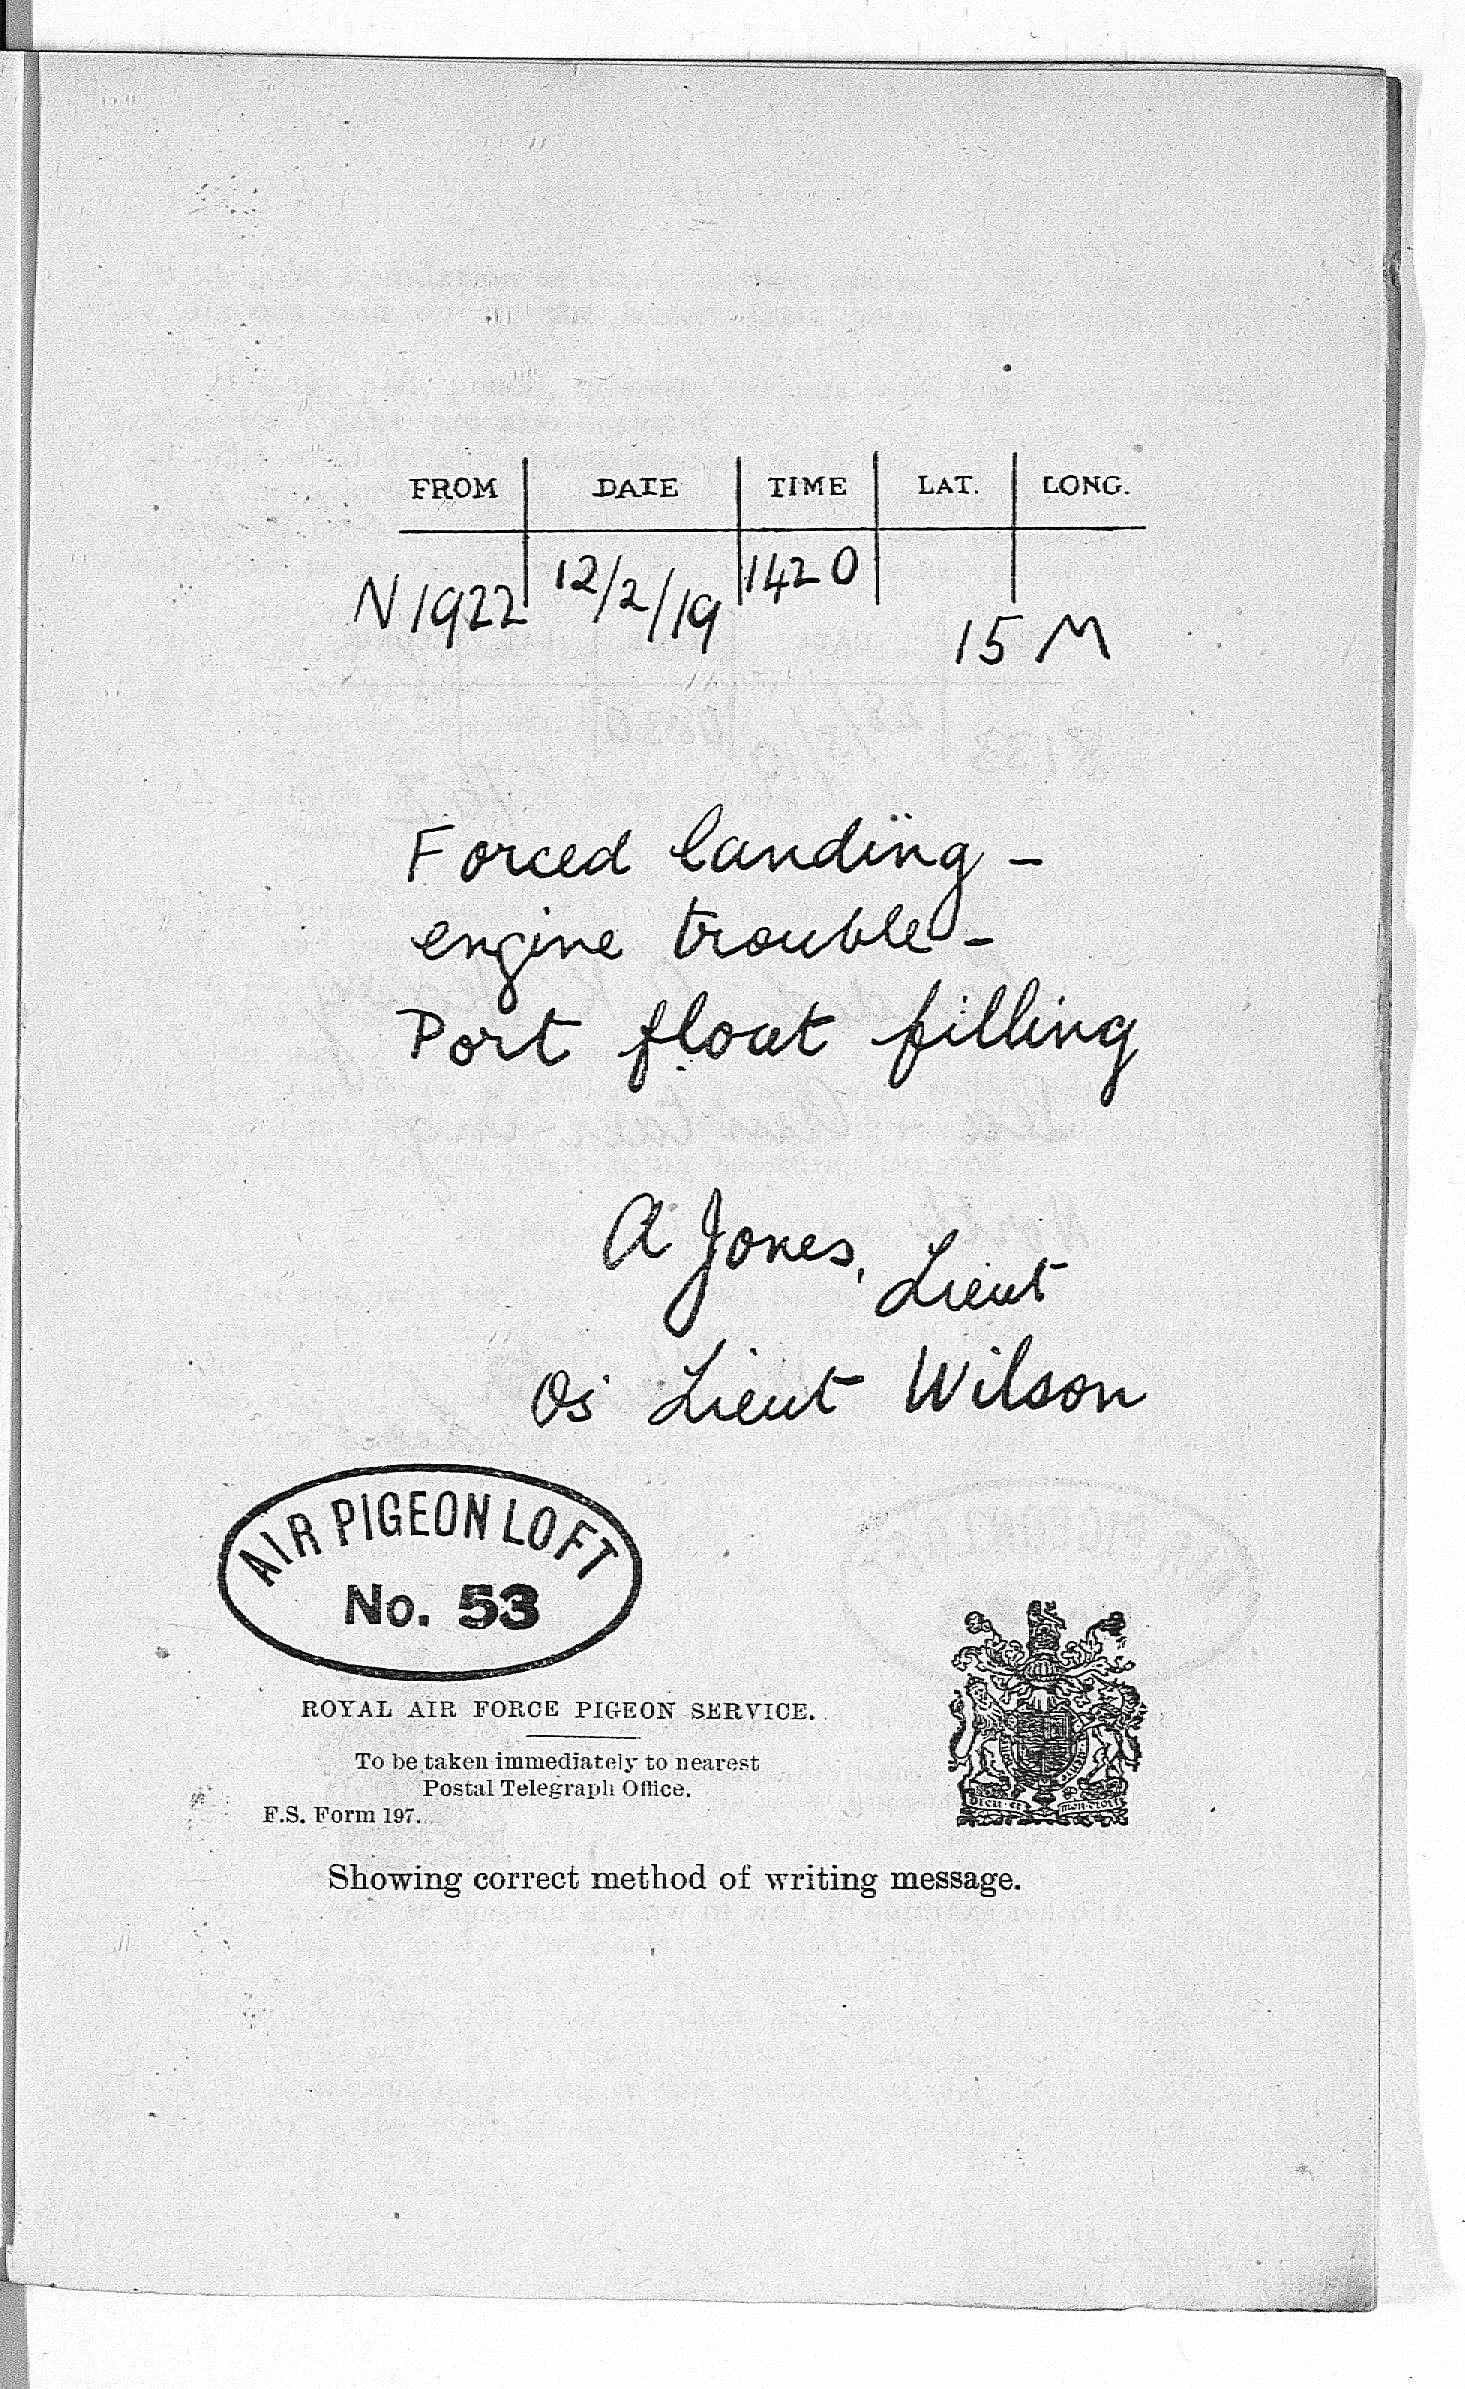 FROM DATE TIME LAT. LONG.
N 1922 12/2/19 1420
15 M
Forced landing –
engine trouble –
Port float filling
A Jones, Lieut
Lieut Wilson
AIR PIGEON LOFT
No. 53
ROYAL AIR FORCE PIGEON SERVICE.
To be taken immediately to nearest
Postal Telegraph Office.
F.S. Form 197.
DIEU · ET MON · DROIT
Showing correct method of writing message.